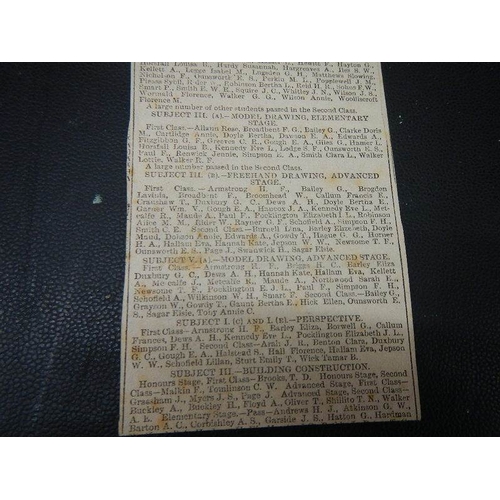 Horrall Louisa E., Hardy Susannah, Hargreaves A., Iles S. W.,
Kellett A., Legge Isabel M., Lugsden G. H., Matthews
Nicholson F., Ounsworth E. S., Perkin M. L., Popplewell J. M.,
Bertha L., Reid H. R., Sohns F. W.,
Smart F., Smith E. W. R., Squire J. C., Whitley J. N., Wilson J. S.,
Wormald Florence, Walker G. G., Wilson Annie, Woodiscroft
Florence M.
A large number of other students passed in the Second Class.
SUBJECT III. (A).—MODEL DRAWING, ELEMENTARY
STAGE.
First Class.—Allann Rose, Broadbent F. G., Bailey G., Clarke Doris
M., Cartlidge Annie, Doyle Bertha, Dawson E. A., Edwards A.,
Fitzgerald G. F., Greaves C. R., Gough E. A., Giles G., Hames I.,
Horsfall Louisa B., Kennedy Eve L., Lodge S. F., Ounsworth E. S.,
Paul F., Renwick Jennie, Simpson E. A., Smith Clara L., Walker
Lottie, Walker R. F.
A large number passed in the Second Class.
SUBJECT III. (B).—FREEHAND DRAWING, ADVANCED
STAGE.
First Class.—Armstrong H. F., Bailey G., Brogden
Lavinia, Broadbent F., Broomhead W., Callum Francis E.,
Crawshaw T., Duxbury G. C., Dews A. H., Doyle Bertha E.,
V., Gough E. A., Hancox J. A., Kennedy Eve L., Met-
calfe R., Maude A., Paul F., Pocklington Elizabeth J. L., Robinson
Alice M. M., Ruley W., Rayner G. F., Schofield A., Simpson F. H.,
Smith C. E. Second Class.—Burnell Lina, Barley Elizabeth, Doyle
Maud, Dobson Annie, Edwards A., Gowdy T., Hague G. G., Horner
H. A., Hallam Eva, Hannah Kate, Jepson W. W., Newsome T. F.,
Ounsworth E. S., Page J., Swonwick H., Sagar Elsie.
SUBJECT V. (A).—MODEL DRAWING, ADVANCED STAGE.
First Class.—Armstrong H. F., Briggs H. C., Barley Eliza
Duxbury G. C., Dews A. H., Hannah Kate, Hallam Eva, Kellett
A., Metcalfe J., Metcalfe R., Maude A., Northwood Sarah E.,
Newsome J. F., Pocklington E. J. L., Paul F., Simpson F. H.,
Schofield A., Wilkinson W. H., Smart F. Second Class.—Bailey G.,
Grayson W., Gowdy T., Gaunt Bertha E., Hick Ellen, Ounsworth E.
S., Sagar Elsie, Tony Annie C.
SUBJECT I. (C) AND I. (B).—PERSPECTIVE.
First Class—Armstrong H. F., Barley Eliza, Boswell G., Callum
Frances, Dews A. H., Kennedy Eve L., Pocklington Elizabeth J. L.,
Simpson F. H. Second Class.—Arah J. R., Benton Clara, Duxbury
G. C., Gough E. A., Halstead S., Hall Florence, Hallam Eva, Jepson
W. W., Schofield Lilian, Sturt Emily T., Wick Tamar B.
SUBJECT III.—BUILDING CONSTRUCTION.
Honours Stage, First Class—Brooke, T. D. Honours Stage, Second
Class—Malkin F., Tomlinson C. W. Advanced Stage, First Class—
Grassham J., Myers J. S., Page J. Advanced Stage, Second Class—
Buckley A., Buckley H., Floyd A., Oliver T., Shillito T. N., Walker
A. E. Elementary Stage.—Pass—Andrews H. J., Atkinson G. W.,
Barton A. C., Corbishley A. S., Garside J. S., Hatton G., Hardman